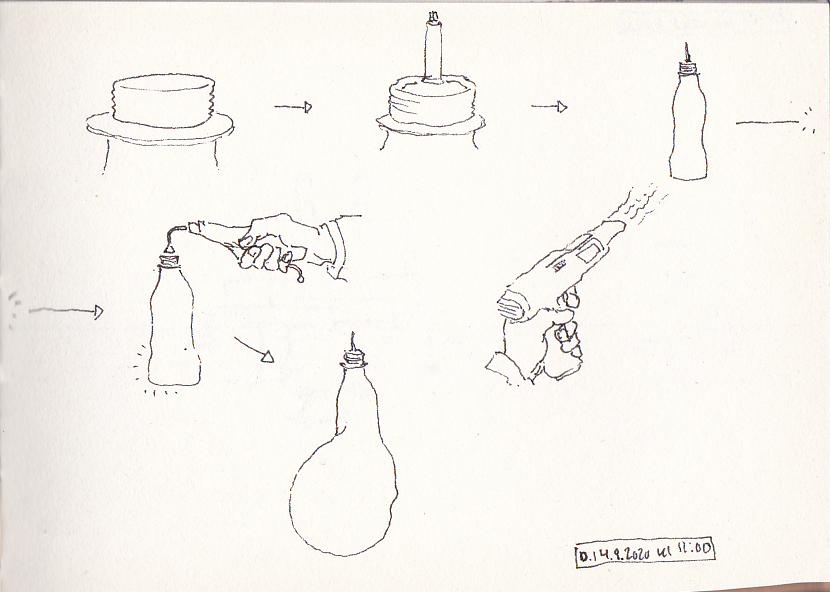 D.14.9.2020 kl 12:00